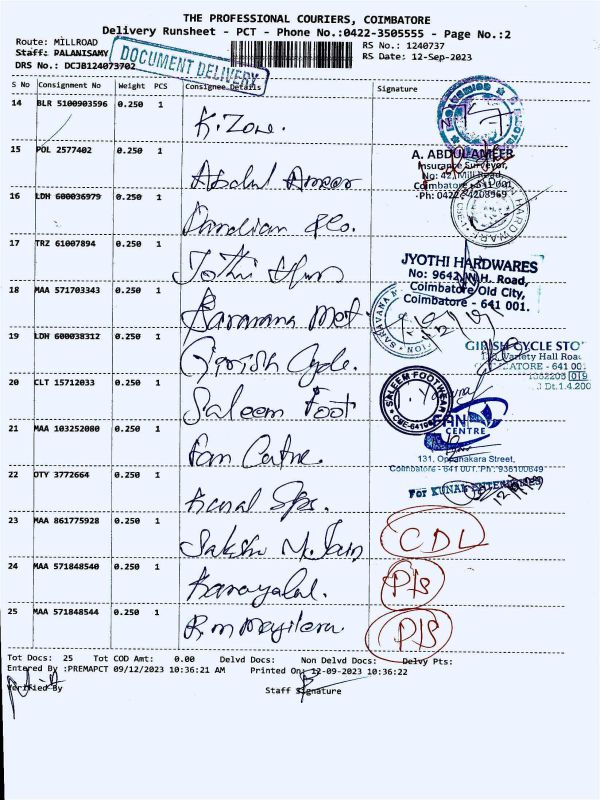 THE PROFESSIONAL COURIERS, COIMBATORE
Delivery Runsheet - PCT - Phone No.:0422-3505555 - Page No.:2
Route: MILLROAD
RS No.: 1240737
Staff: PALANISAMY
RS Date: 12-Sep-2023
DRS No.: DCJB124073702
DOCUMENT DELIVERY
S No Consignment No Weight PCS Consignee Details Signature
14 BLR 5100903596 0.250 1 K. Zone.
15 POL 2577402 0.250 1 Abdul Ameer
A. ABDUL AMEER
Insurance Surveyor,
No: 42, Mill Road,
Coimbatore - 641 001.
Ph: 0422-4208969
16 LDH 600036979 0.250 1
17 TRZ 61007894 0.250 1 Jothi
JYOTHI HARDWARES
No: 9642, N.H. Road,
Coimbatore Old City,
Coimbatore - 641 001.
18 MAA 571703343 0.250 1 Saravana Met
SARAVANA
19 LDH 600038312 0.250 1 Girish Cycle.
GIRISH CYCLE STO
Variety Hall Road
COIMBATORE - 641 001
20 CLT 15712033 0.250 1 Saleem Foot
SALEEM FOOTWEAR
21 MAA 103252080 0.250 1 Fan Centre.
FAN
CENTRE
131, Oppanakara Street,
Coimbatore - 641 001. Ph : 936100649
22 OTY 3772664 0.250 1
For KUNAL ENTERPRISES
23 MAA 861775928 0.250 1 Sakshi M. Jain CDL
24 MAA 571848540 0.250 1 P/S
25 MAA 571848544 0.250 1 P/S
Tot Docs: 25 Tot COD Amt: 0.00 Delvd Docs: Non Delvd Docs: Delvy Pts:
Entered By :PREMAPCT 09/12/2023 10:36:21 AM Printed On: 12-09-2023 10:36:22
Verified By Staff Signature